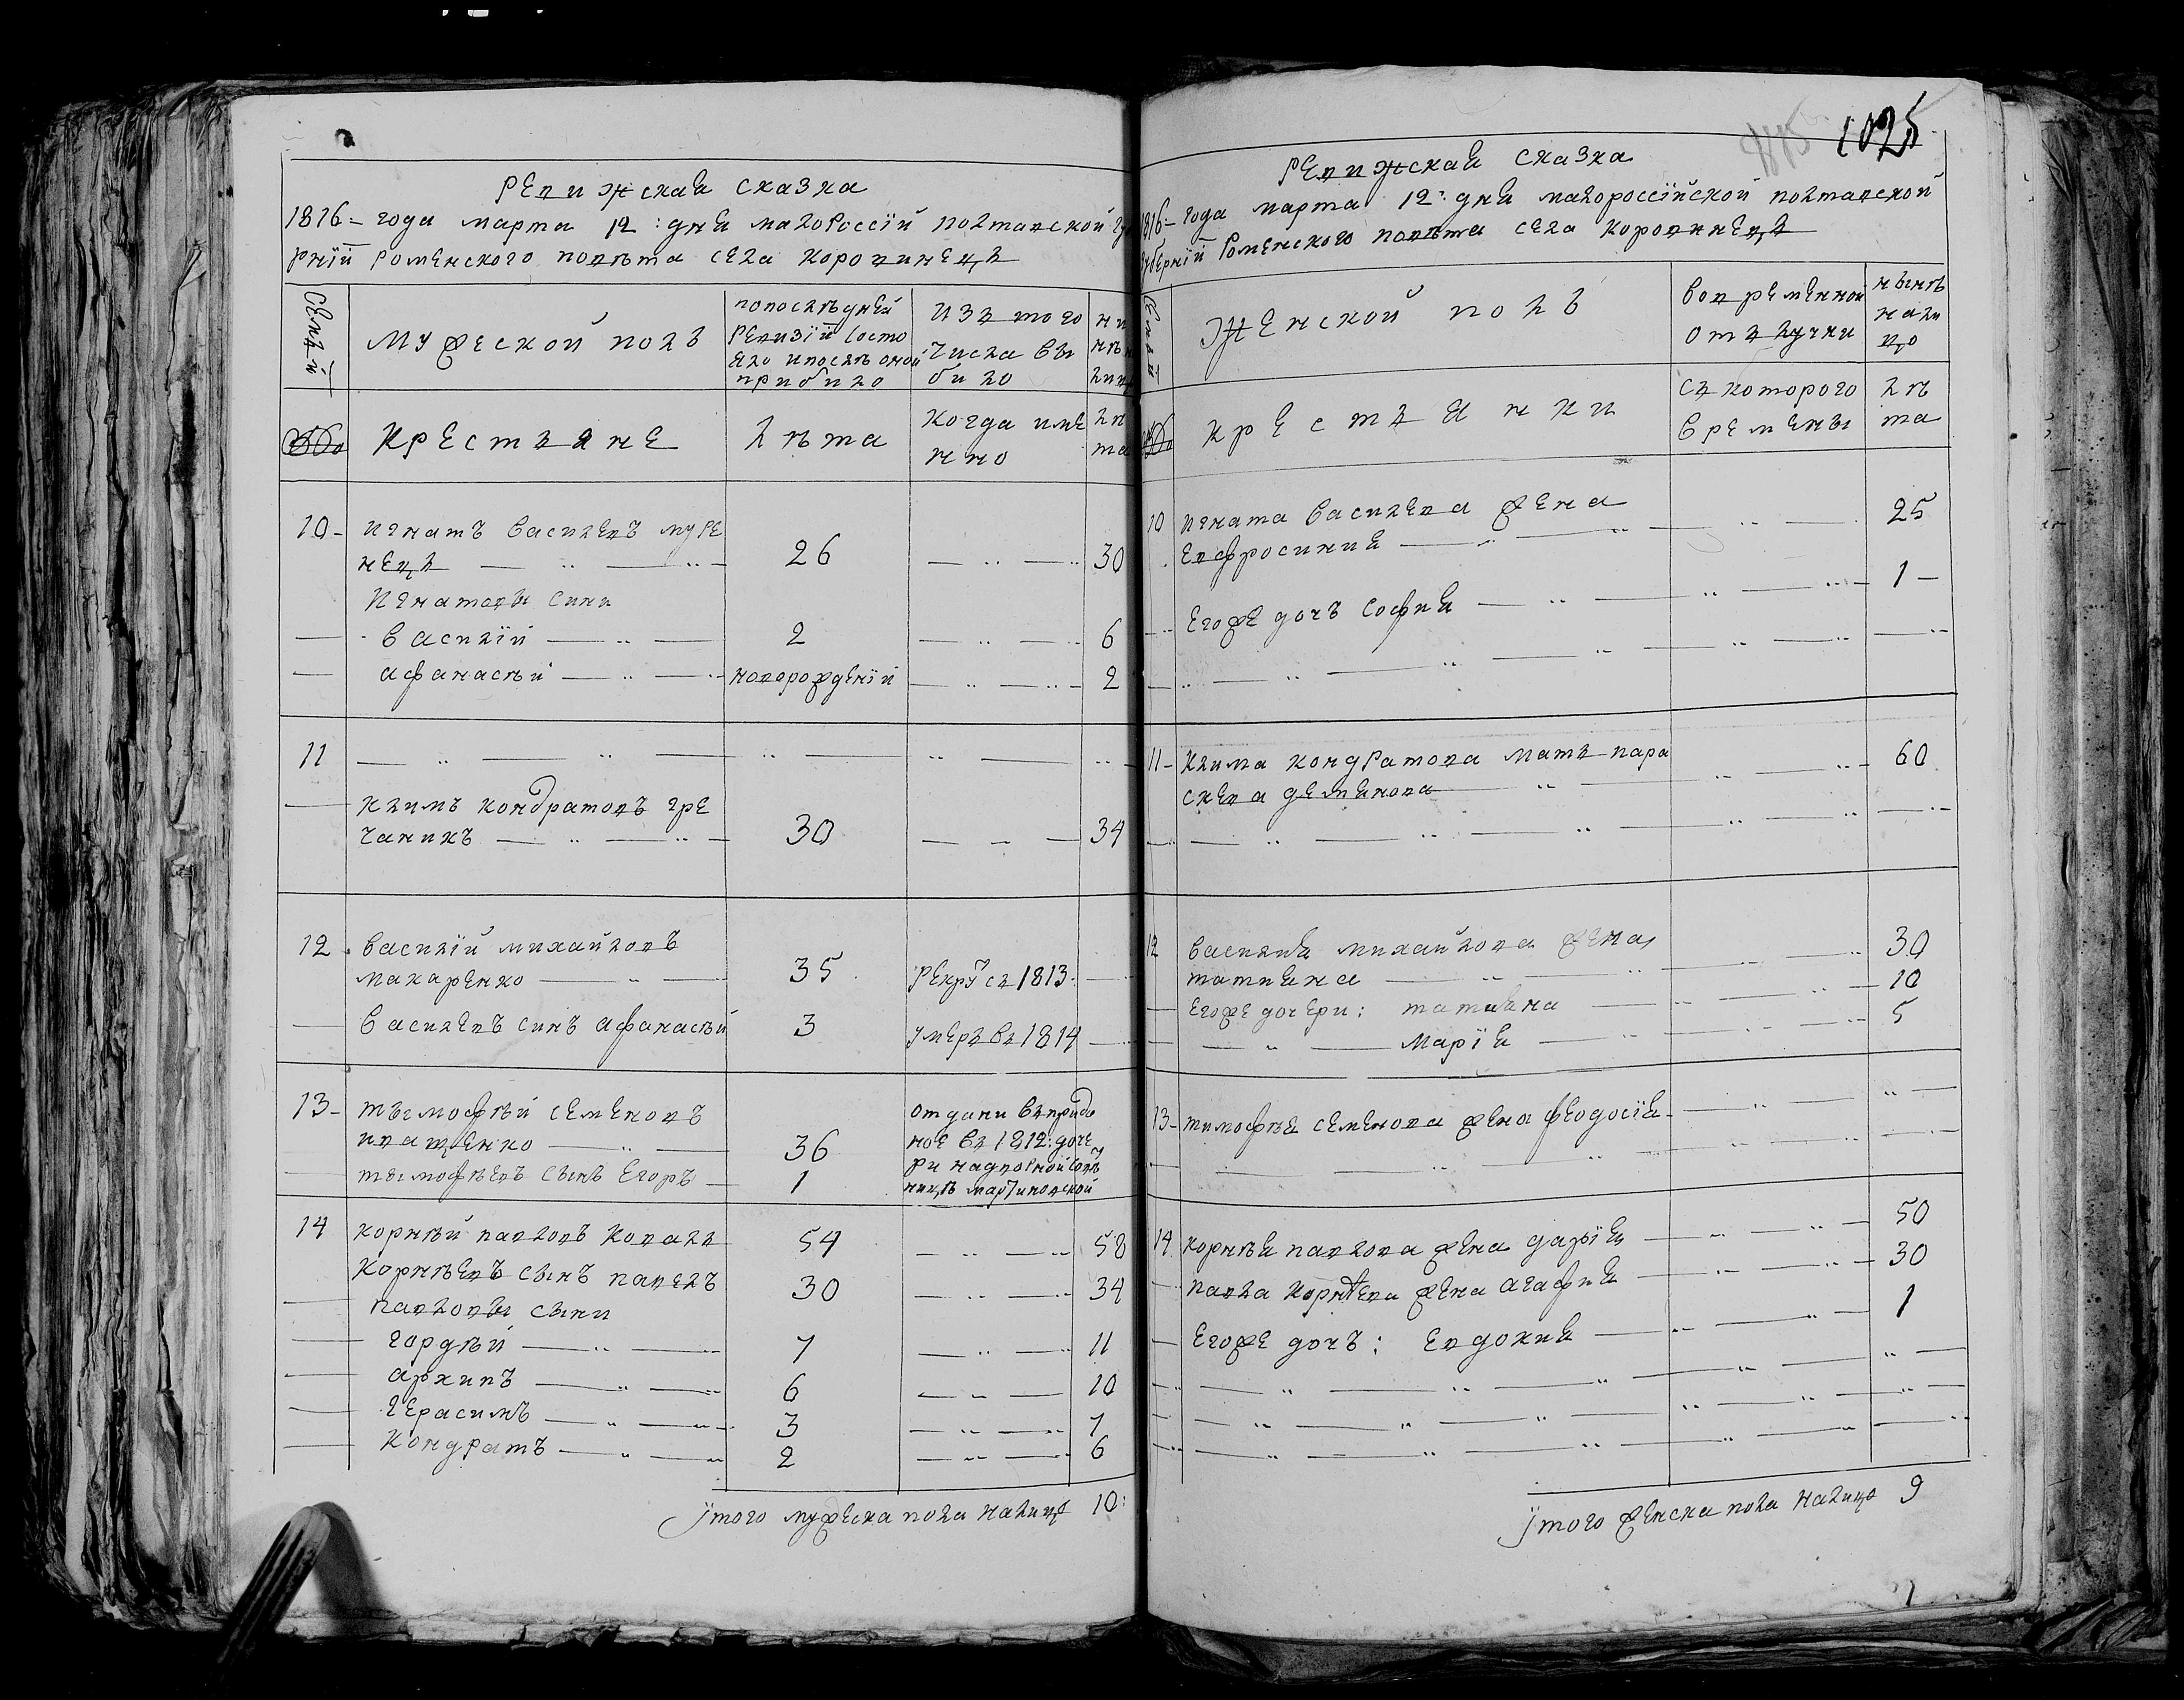 Ревижская сказка
1816= года марта 12: дня малороссїй полтавской гу
рнїй роменского повѣта села коровинецъ
Семьй
мужеской полъ
попослѣдней
ревизїй состо
яло ипослѣ оной
прибило
изъ того
числа вы
било
ни
нѣ н
лиц
крестьяне
лѣта
когда име
нно
лѣ
та
10- игнатъ васильевъ муре
нецъ 26 30
игнатовы сини
василїй 2 6
афанасѣй новорожденїй 2
11
климъ кондратовъ гре
чаникъ 30 34
12 василїй михайловъ
макаренко 35 рекру съ 1813
васильевъ синъ афанасѣй 3 умеръ въ 1814
13- тымофѣй семеновъ
иващенко 36
тымофѣевъ сынъ егоръ 1
отдани въприда
ное въ 1812: доче
ри надворной совѣ
ницѣ мартиновской
14 корнѣй павловъ коваль 54 58
корнѣевъ сынъ павелъ 30 34
павловы сыни
гордѣй 7 11
архипъ 6 10
герасимъ 3 7
кондратъ 2 6
Итого мужеска пола налицо 10:
1025
Ревижская сказка
1816= года марта 12: дня малороссїйской полтавской
губернїй роменского повѣта села коровинецъ
Семьй
женской полъ
вовременной
отълучки
нынѣ
нали
цо
крестьянки
съкоторого
времены
лѣ
та
10 игната васильева жена
евфросиния 25
Егоже дочъ софия 1
11- клима кондратова мать пара
скева демянова 60
12 василия михайлова жена
татияна 30
Егоже дочери: татияна 10
марїя 5
13- тимофѣя семенова жена феодосїя
14 корнѣя павлова жена дарїя 50
павла корнѣева жена агафия 30
Егоже дочъ: евдокия 1
Итого женска пола налицо 9